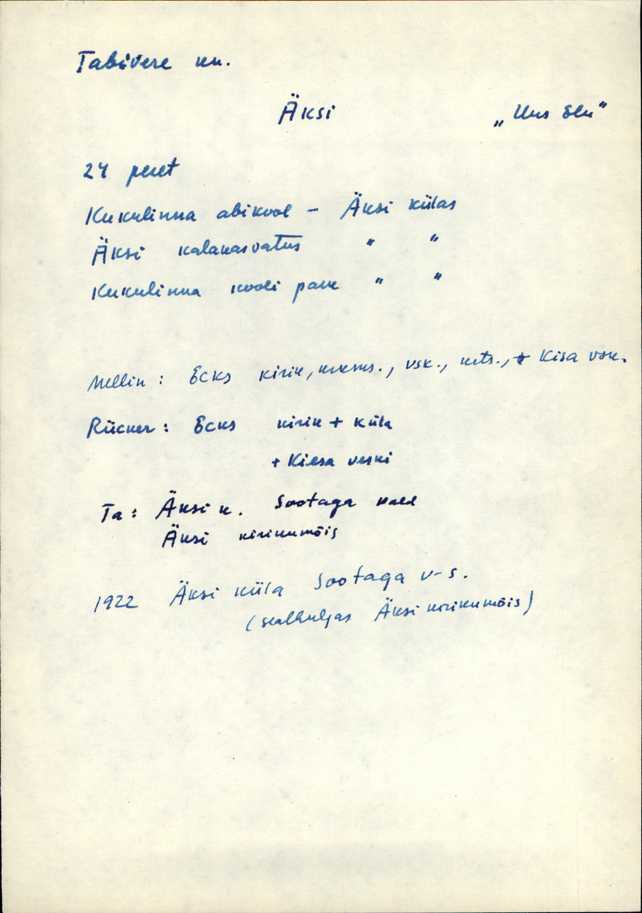 Tabivere kn.
Äksi „Uus Elu“
24 peret
Kukulinna abikool - Äksi külas
Äksi kalakasvatus " "
Kukulinna kooli park " "
Mellin: Ecks kirik, vsk., + Kisa vsk.
Rücker: Ecks kirik + küla
+ Kiesa veski
Ta: Äksi k. Sootaga vald
Äksi kirikumõis
1922 Äksi küla Sootaga v-s.
(sealhulgas Äksi kirikumõis)